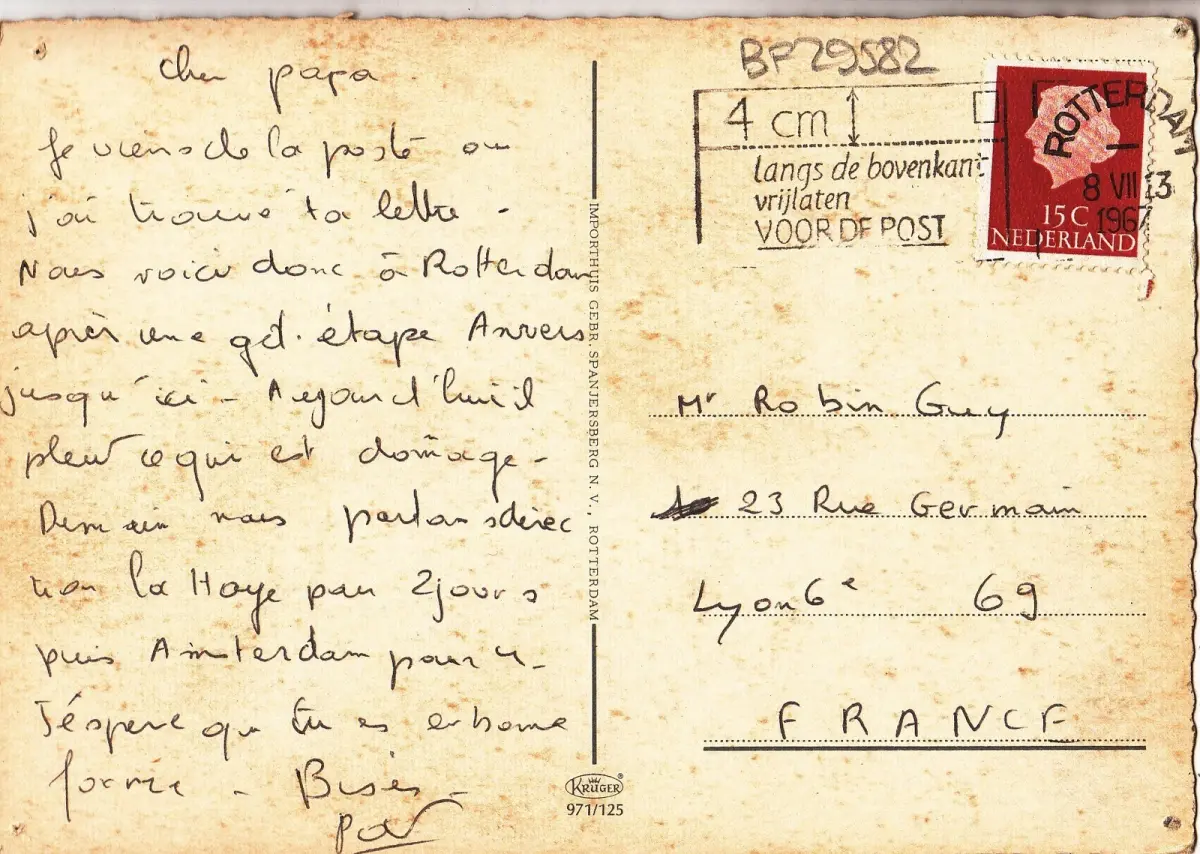 Cher papa
Je viens de la poste ou
j'ai trouvé ta lettre -
Nous voici donc à Rotterdam
après une gde. étape Anvers
jusqu'ici - Aujourd'hui il
pleut ce qui est domage -
Demain nous partons direc
tion la Haye pour 2 jours
puis Amsterdam pour 4 -
J'éspere que tu es en bonne
forme - Bises -
IMPORTHUIS GEBR. SPANJERSBERG N.V., ROTTERDAM
KRÜGER
971/125
BP29582
4 cm
langs de bovenkant
vrijlaten
VOOR DE POST
ROTTERDAM
8 VII 13
1967
15 C
NEDERLAND
Mr Robin Guy
23 Rue Germain
Lyon 6e 69
FRANCE